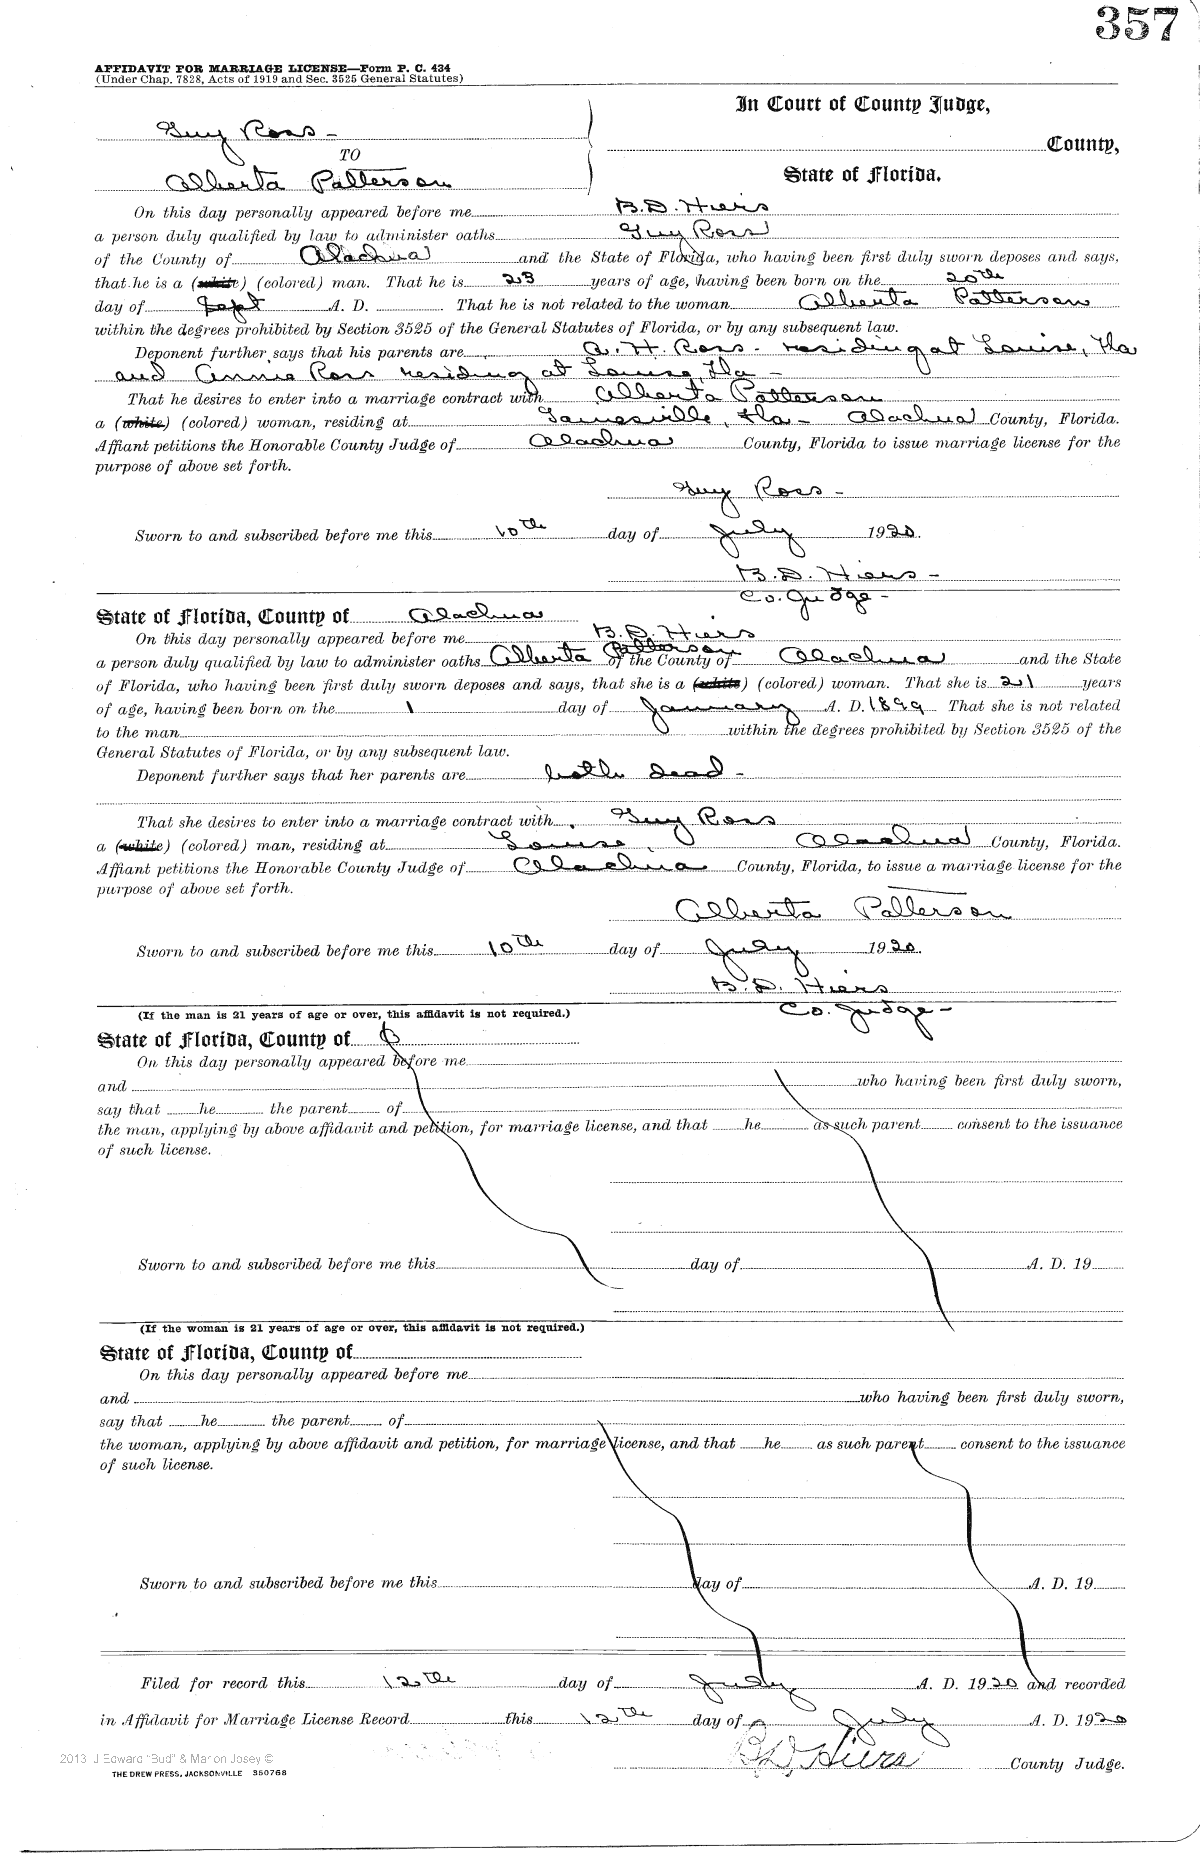 357
AFFIDAVIT FOR MARRIAGE LICENSE—Form P. C. 434
(Under Chap. 7828, Acts of 1919 and Sec. 3525 General Statutes)
In Court of County Judge,
Guy Ross -
County,
TO
State of Florida.
Alberta Patterson
On this day personally appeared before me B. D. Hiers
a person duly qualified by law to administer oaths Guy Ross
of the County of Alachua and the State of Florida, who having been first duly sworn deposes and says,
that he is a (white) (colored) man. That he is 23 years of age, having been born on the 20th
day of Sept A. D. That he is not related to the woman Alberta Patterson
within the degrees prohibited by Section 3525 of the General Statutes of Florida, or by any subsequent law.
Deponent further says that his parents are A. H. Ross - residing at Louise, Fla
and Annie Ross residing at Louise, Fla -
That he desires to enter into a marriage contract with Alberta Patterson
a (white) (colored) woman, residing at Gainesville, Fla - Alachua County, Florida.
Affiant petitions the Honorable County Judge of Alachua County, Florida to issue marriage license for the
purpose of above set forth.
Guy Ross -
Sworn to and subscribed before me this 10th day of July 1920.
B. D. Hiers -
Co. Judge -
State of Florida, County of Alachua
On this day personally appeared before me B. D. Hiers
a person duly qualified by law to administer oaths Alberta Patterson of the County of Alachua and the State
of Florida, who having been first duly sworn deposes and says, that she is a (white) (colored) woman. That she is 21 years
of age, having been born on the 1 day of January A. D. 1899 That she is not related
to the man within the degrees prohibited by Section 3525 of the
General Statutes of Florida, or by any subsequent law.
Deponent further says that her parents are both dead -
That she desires to enter into a marriage contract with Guy Ross
a (white) (colored) man, residing at Louise, Alachua County, Florida.
Affiant petitions the Honorable County Judge of Alachua County, Florida, to issue a marriage license for the
purpose of above set forth.
Alberta Patterson
Sworn to and subscribed before me this 10th day of July 1920.
B. D. Hiers
Co. Judge -
(If the man is 21 years of age or over, this affidavit is not required.)
State of Florida, County of
On this day personally appeared before me
and who having been first duly sworn,
say that he the parent of
the man, applying by above affidavit and petition, for marriage license, and that he as such parent consent to the issuance
of such license.
Sworn to and subscribed before me this day of A. D. 19
(If the woman is 21 years of age or over, this affidavit is not required.)
State of Florida, County of
On this day personally appeared before me
and who having been first duly sworn,
say that he the parent of
the woman, applying by above affidavit and petition, for marriage license, and that he as such parent consent to the issuance
of such license.
Sworn to and subscribed before me this day of A. D. 19
Filed for record this 12th day of July A. D. 1920 and recorded
in Affidavit for Marriage License Record this 12th day of July A. D. 1920
B D Hiers County Judge.
2013 J Edward "Bud" & Marion Josey ©
THE DREW PRESS, JACKSONVILLE 350768